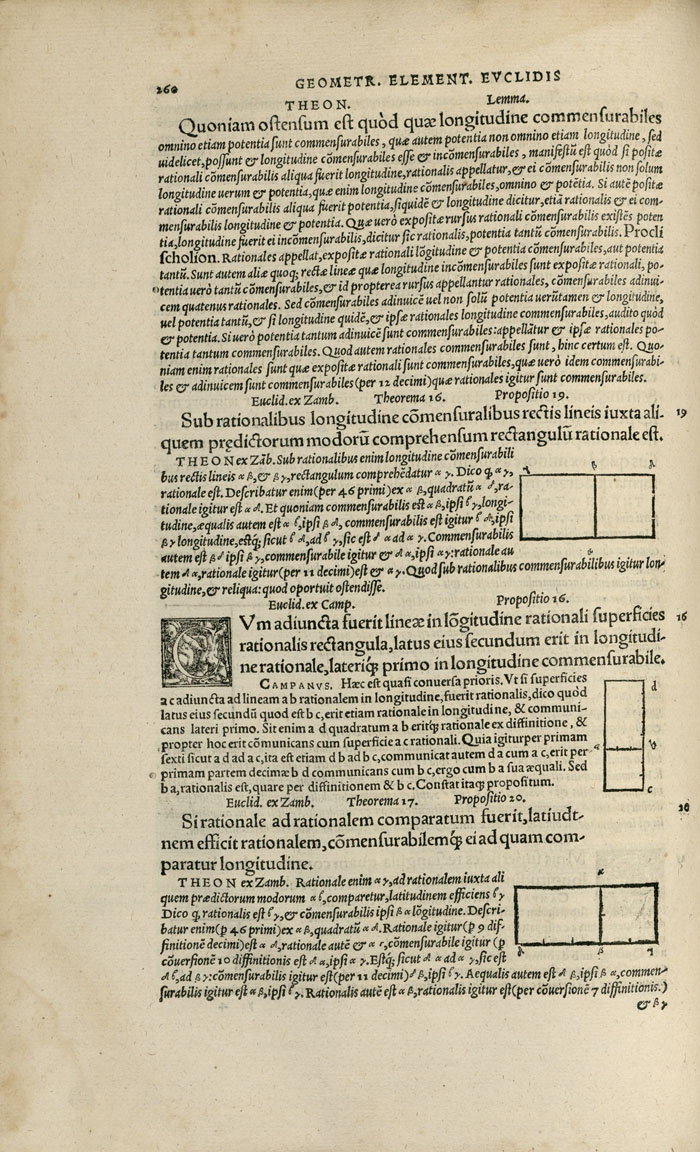 260
GEOMETR. ELEMENT. EVCLIDIS
THEON. Lemma.
Quoniam ostensum est quòd quæ longitudine commensurabiles
omnino etiam potentia sunt commensurabiles, quæ autem potentia non omnino etiam longitudine, sed
uidelicet, possunt & longitudine cõmensurabiles esse & incõmensurabiles, manifestũ est quòd si positæ
rationali cõmensurabilis aliqua fuerit longitudine, rationalis appellatur, & ei cõmensurabilis non solum
longitudine uerum & potentia, quæ enim longitudine cõmensurabiles, omnino & potẽtia. Si autẽ positæ
rationali cõmensurabilis aliqua fuerit potentia, siquidẽ & longitudine dicitur, etiã rationalis & ei com-
mensurabilis longitudine & potentia. Quæ uerò expositæ rursus rationali cõmensurabilis existẽs poten
tia, longitudine fuerit ei incõmensurabilis, dicitur sic rationalis, potentia tantũ cõmensurabilis. Procli
scholion. Rationales appellat, expositæ rationali lõgitudine & potentia cõmensurabiles, aut potentia
tantũ. Sunt autem aliæ quoq; rectæ lineæ quæ longitudine incõmensurabiles sunt expositæ rationali, po-
tentia uerò tantũ cõmensurabiles, & id propterea rursus appellantur rationales, cõmensurabiles adinui-
cem quatenus rationales. Sed cõmensurabiles adinuicẽ uel non solũ potentia uerũtamen & longitudine,
uel potentia tantũ, & si longitudine quidẽ, & ipsæ rationales longitudine commensurabiles, audito quòd
& potentia. Si uerò potentia tantum adinuicẽ sunt commensurabiles: appellãtur & ipsæ rationales po-
tentia tantum commensurabiles. Quòd autem rationales commensurabiles sunt, hinc certum est. Quo-
niam enim rationales sunt quæ expositæ rationali sunt commensurabiles, quæ uerò idem commensurabi-
les & adinuicem sunt commensurabiles (per 12 decimi) quæ rationales igitur sunt commensurabiles.
Euclid. ex Zamb. Theorema 16. Propositio 19.
Sub rationalibus longitudine cõmensuralibus rectis lineis iuxta ali- 19
quem prędictorum modorũ comprehensum rectangulũ rationale est.
THEON ex Zãb. Sub rationalibus enim longitudine cõmensurabili
bus rectis lineis α β, & β γ, rectangulum comprehẽdatur α γ. Dico q, α γ,
rationale est. Describatur enim (per 46 primi) ex α β, quadratũ α δ, ra-
tionale igitur est α δ. Et quoniam commensurabilis est α β, ipsi β γ, longi-
tudine, æqualis autem est α β, ipsi β δ, commensurabilis est igitur β δ, ipsi
β γ longitudine, estq; sicut β δ, ad β γ, sic est δ α ad α γ. Commensurabilis
autem est β δ ipsi β γ, commensurabile igitur & δ α, ipsi α γ: rationale au
tem δ α, rationale igitur (per 11 decimi) est & α γ. Quod sub rationalibus commensurabilibus igitur lon-
gitudine, & reliqua: quod oportuit ostendisse.
Euclid. ex Camp. Propositio 16.
QVm adiuncta fuerit lineæ in lõgitudine rationali superficies 16
rationalis rectangula, latus eius secundum erit in longitudi-
ne rationale, lateriq; primo in longitudine commensurabile.
CAMPANVS. Hæc est quasi conuersa prioris. Vt si superficies
a c adiuncta ad lineam a b rationalem in longitudine, fuerit rationalis, dico quòd
latus eius secundũ quod est b c, erit etiam rationale in longitudine, & communi-
cans lateri primo. Sit enim a d quadratum a b eritq; rationale ex diffinitione, &
propter hoc erit cõmunicans cum superficie a c rationali. Quia igitur per primam
sexti sicut a d ad a c, ita est etiam d b ad b c, communicat autem d a cum a c, erit per
primam partem decimæ b d communicans cum b c, ergo cum b a sua æquali. Sed
b a, rationalis est, quare per diffinitionem & b c. Constat itaq; propositum.
d
a b
c
Euclid. ex Zamb. Theorema 17. Propositio 20.
Si rationale ad rationalem comparatum fuerit, latiudi- 20
nem efficit rationalem, cõmensurabilemq; ei ad quam com-
paratur longitudine.
THEON ex Zamb. Rationale enim α γ, ad rationalem iuxta ali
quem prædictorum modorum α β, comparetur, latitudinem efficiens β γ
Dico q, rationalis est β γ, & cõmensurabilis ipsi β α lõgitudine. Descri-
batur enim (p 46 primi) ex α β, quadratũ α δ. Rationale igitur (p 9 dif-
finitionẽ decimi) est α δ, rationale autẽ & α γ, cõmensurabile igitur (p
cõuersionẽ 10 diffinitionis est δ α, ipsi α γ. Estq; sicut δ α ad α γ, sic est
δ β, ad β γ: cõmensurabilis igitur est (per 11 decimi) δ β, ipsi β γ. Aequalis autem est δ β, ipsi β α, commen-
surabilis igitur est α β, ipsi β γ. Rationalis autẽ est α β, rationalis igitur est (per cõuersionẽ 7 diffinitionis.)
& β γ